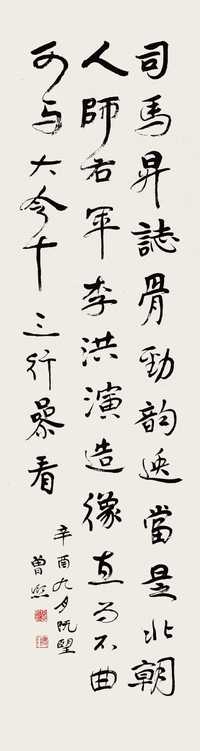 司馬昇誌骨勁韵逸當是北朝
人師右軍李洪演造像直而不曲
可与大令十三行㕘看
辛酉九月既望
曾熙